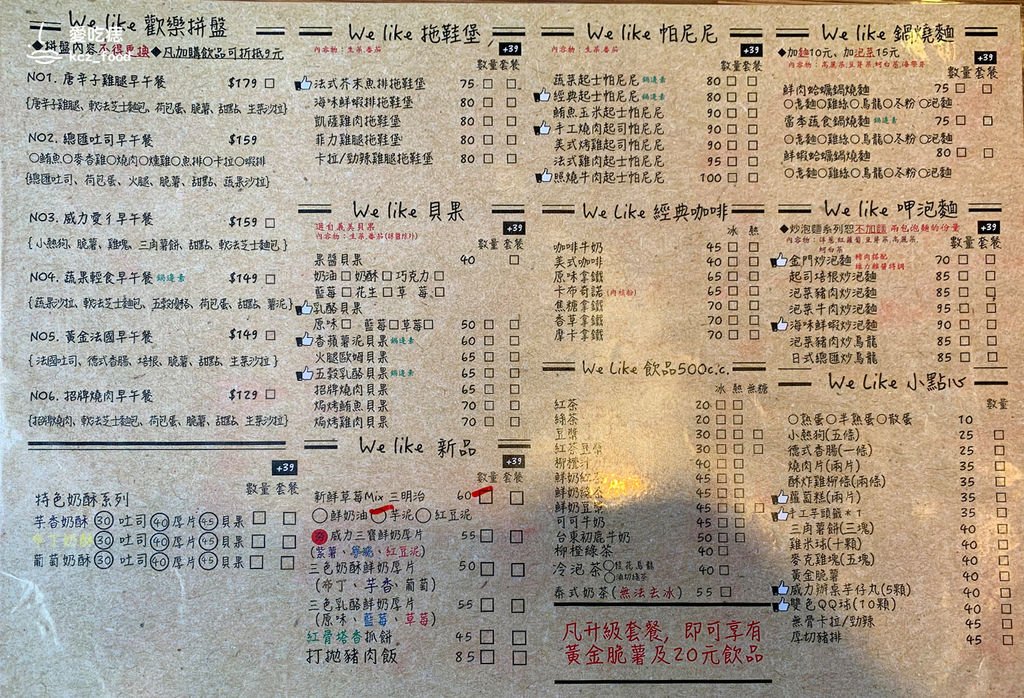 We like 歡樂拼盤
◆拼盤內容不得更換 ◆凡加購飲品可折抵9元
愛吃鬼
kcz_food
NO1. 唐辛子雞腿早午餐 $179 □
{唐辛子雞腿、軟法芝士麵包、荷包蛋、脆薯、甜點、生菜沙拉}
NO2. 總匯吐司早午餐 $159
○鮪魚○麥香雞○燒肉○燻雞○魚排○卡拉○蝦排
{總匯吐司、荷包蛋、火腿、脆薯、甜點、蔬果沙拉}
NO3. 威力愛ㄔ早午餐 $159 □
{小熱狗、脆薯、雞塊、三角薯餅、甜點、軟法芝士麵包}
NO4. 蔬果輕食早午餐 鍋邊素 $149 □
{蔬菜沙拉、軟法芝士麵包、五穀優格、荷包蛋、甜點、薯泥}
NO5. 黃金法國早午餐 $149 □
{法國吐司、德式香腸、培根、脆薯、甜點、生菜沙拉}
NO6. 招牌燒肉早午餐 $129 □
{招牌燒肉、軟法芝士麵包、荷包蛋、脆薯、甜點、生菜沙拉}
+39
數量 套餐
特色奶酥系列
芋香奶酥 30 吐司 40 厚片 45 貝果 □ □
奶酥 30 吐司 40 厚片 45 貝果 □ □
葡萄奶酥 30 吐司 40 厚片 45 貝果 □ □
We like 拖鞋堡
內容物：生菜.番茄
+39
數量 套餐
法式芥末魚排拖鞋堡 75 □ □
海味鮮蝦排拖鞋堡 80 □ □
凱薩雞肉拖鞋堡 80 □ □
菲力雞腿拖鞋堡 80 □ □
卡拉/勁辣雞腿拖鞋堡 80 □ □
We like 貝果
選自義美貝果
內容物：生菜.番茄(抹醬除外)
+39
數量 套餐
果醬貝果 40 □
奶油□奶酥□巧克力□
藍莓□花生□草莓□
乳酪貝果
原味□ 藍莓□草莓□ 50 □ □
香蘋薯泥貝果 鍋邊素 60 □ □
火腿歐姆貝果 65 □ □
五穀乳酪貝果 鍋邊素 65 □ □
招牌燒肉貝果 65 □ □
焗烤鮪魚貝果 70 □ □
焗烤雞肉貝果 70 □ □
We like 新品
+39
數量 套餐
新鮮草莓Mix三明治 60 □ □
○鮮奶油○芋泥○紅豆泥
威力三寶鮮奶厚片 55 □ □
(紫薯、芋泥、紅豆泥)
三色奶酥鮮奶厚片 50 □ □
(布丁、芋香、葡萄)
三色乳酪鮮奶厚片 55 □ □
(原味、藍莓、草莓)
紅骨塔香抓餅 45 □ □
打拋豬肉飯 85 □ □
We like 帕尼尼
內容物：生菜.番茄
+39
數量 套餐
蔬果起士帕尼尼 鍋邊素 80 □ □
經典起士帕尼尼 鍋邊素 80 □ □
鮪魚玉米起士帕尼尼 90 □ □
手工燒肉起司帕尼尼 90 □ □
美式烤雞起司帕尼尼 90 □ □
法式雞肉起士帕尼尼 95 □ □
照燒牛肉起士帕尼尼 100 □ □
We Like 經典咖啡
冰 熱
咖啡牛奶 45 □ □
美式咖啡 40 □ □
原味拿鐵 65 □ □
卡布奇諾(肉桂粉) 65 □ □
焦糖拿鐵 70 □ □
香草拿鐵 70 □ □
摩卡拿鐵 70 □ □
We Like 飲品500c.c.
冰 熱 無糖
紅茶 20 □ □
綠茶 20 □ □
豆漿 30 □ □ □
紅茶豆漿 30 □ □ □
柳橙汁 40 □ □
鮮奶紅茶 40 □ □
鮮奶綠茶 40 □ □
鮮奶豆漿 40 □ □ □
可可牛奶 40 □ □
台東初鹿牛奶 50 □ □
柳橙綠茶 40 □
冷泡茶 ○桂花烏龍 40 □
○油切綠茶
泰式奶茶(無法去冰) 55 □
凡升級套餐，即可享有
黃金脆薯及20元飲品
We like 鍋燒麵
◆加麵10元、加泡菜15元
內容物：高麗菜.豆芽菜.蛤白菜.海帶芽
+39
數量 套餐
鮮肉蛤蠣鍋燒麵 75 □ □
○意麵○雞絲○烏龍○冬粉○泡麵
當季蔬食鍋燒麵 鍋邊素 75 □ □
○意麵○雞絲○烏龍○冬粉○泡麵
鮮蝦蛤蠣鍋燒麵 80 □ □
○意麵○雞絲○烏龍○冬粉○泡麵
We like 呷泡麵
◆炒泡麵系列恕不加麵 兩包泡麵的份量
內容物：洋蔥.紅蘿蔔.豆芽菜.高麗菜.
+39
數量 套餐
金門炒泡麵 豬肉搭配 70 □ □
起司培根炒泡麵 85 □ □
泡菜豬肉炒泡麵 85 □ □
泡菜牛肉炒泡麵 95 □ □
海味鮮蝦炒泡麵 90 □ □
泡菜豬肉炒烏龍 85 □ □
日式總匯炒烏龍 85 □ □
We Like 小點心
數量
○熟蛋○半熟蛋○散蛋 10
小熱狗(五條) 25 □
德式香腸(一條) 25 □
燒肉片(兩片) 35 □
酥炸雞柳條(兩條) 35 □
蘿蔔糕(兩片) 35 □
手工芋頭籤*1 35 □
三角薯餅(三塊) 40 □
雞米球(十顆) 40 □
麥克雞塊(五塊) 40 □
黃金脆薯 40 □
威力辦桌芋仔丸(5顆) 40 □
雙色QQ球(10顆) 40 □
無骨卡拉/勁辣 45 □
厚切豬排 45 □